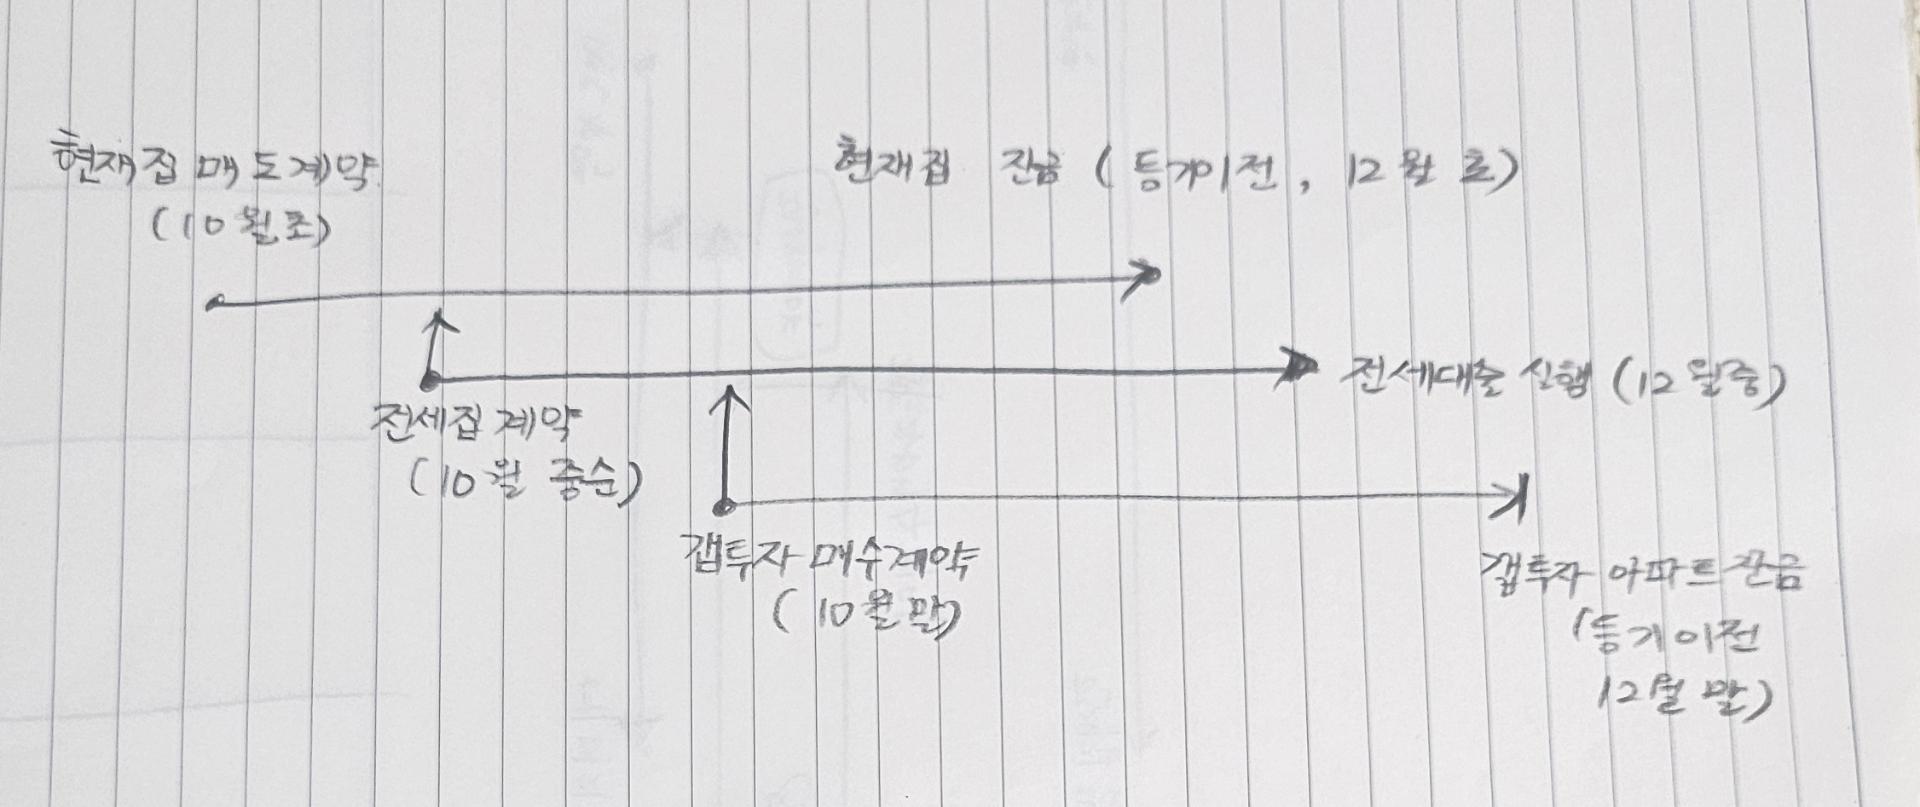 현재집 매도계약
(10월초)
현재집 잔금 (등기이전, 12월 초)
전세대출 실행 (12월중)
전세집 계약
(10월 중순)
갭투자 매수계약
(10월말)
갭투자 아파트 잔금
(등기이전
12월 말)